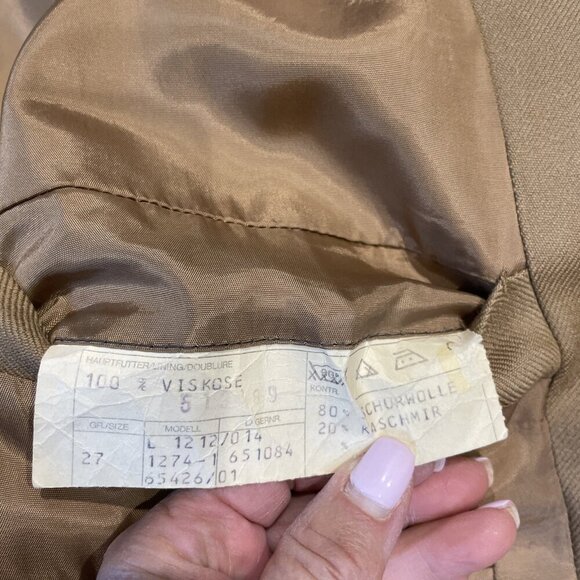 HAUPTFUTTER/LINING/DOUBLURE
100 % VISKOSE
KONTR.
80 % SCHURWOLLE
20 % KASCHMIR
%
GR./SIZE MODELL LAGERNR.
27
L 1212/014
1274-1 651084
65426/01